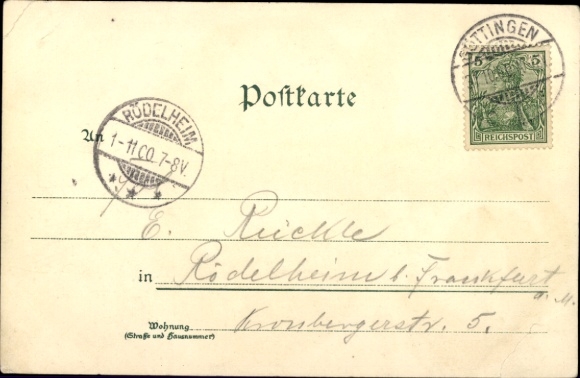 GÖTTINGEN
5 5
REICHSPOST
Postkarte
An
RÖDELHEIM
1-11 00 7-8V.
E. Rückle
in Rödelheim b. Frankfurt
a. M.
Wohnung
(Straße und Hausnummer)
Kronbergerstr. 5.